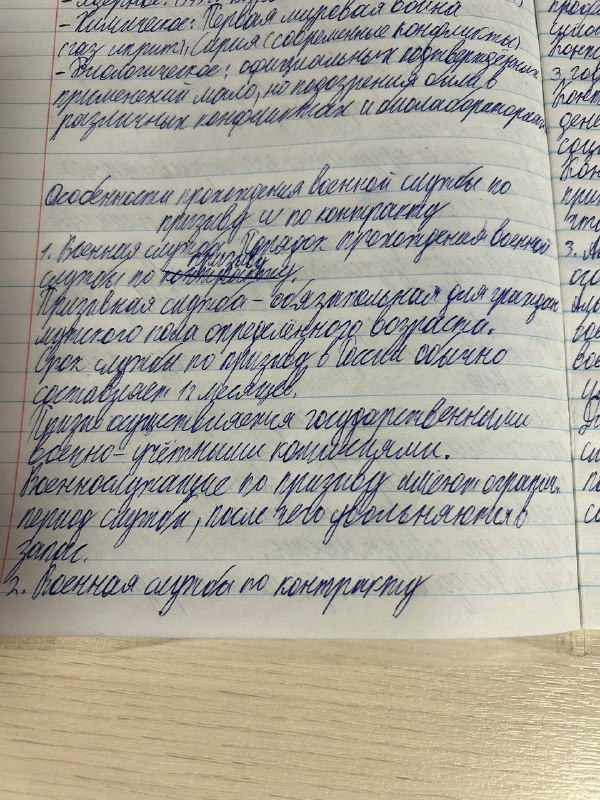 - Химическое: Первая мировая война
(газ иприт), Сирия (современные конфликты)
- Биологическое: официальных подтверждённых
применений мало, но подозрения были в
различных конфликтах и биолабораториях
Особенности прохождения военной службы по
призыву и по контракту
1. Военная служба. Порядок прохождения военной
службы по призыву.
Призывная служба - обязательная для граждан
мужского пола определённого возраста.
Срок службы по призыву в России обычно
составляет 12 месяцев.
Призыв осуществляется государственными
военно-учётными комиссиями.
Военнослужащие по призыву имеют огранич.
период службы, после чего увольняются в
запас.
2. Военная службы по контракту